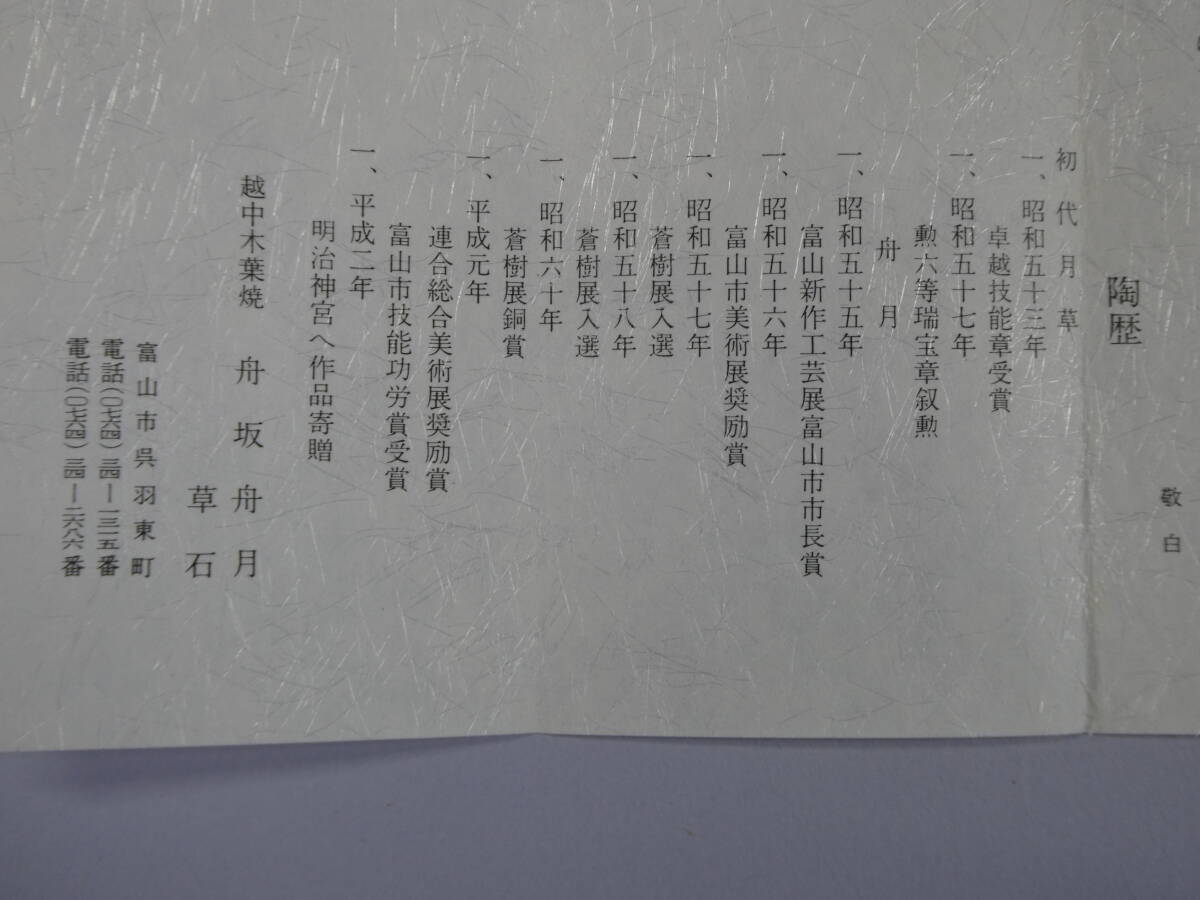 敬白
陶歴
初代月草
一、昭和五十三年
卓越技能章受賞
一、昭和五十七年
勲六等瑞宝章叙勲
舟月
一、昭和五十五年
富山新作工芸展富山市市長賞
一、昭和五十六年
富山市美術展奨励賞
一、昭和五十七年
蒼樹展入選
一、昭和五十八年
蒼樹展入選
一、昭和六十年
蒼樹展銅賞
一、平成元年
連合総合美術展奨励賞
富山市技能功労賞受賞
一、平成二年
明治神宮へ作品寄贈
越中木葉焼 舟坂舟月
草石
富山市呉羽東町
電話(〇七六四)三四―一三一五番
電話(〇七六四)三四―二六八六番